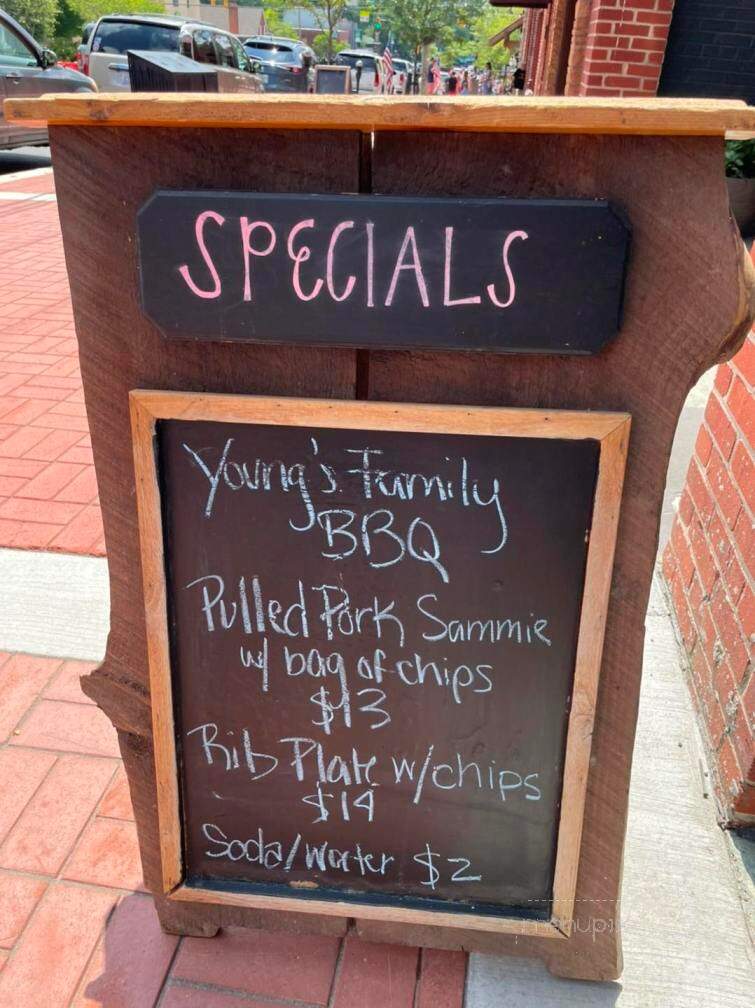 SPECIALS
Young's Family
BBQ
Pulled Pork Sammie
w/ bag of chips
$13
Rib Plate w/chips
$14
Soda/Water $2
menupix